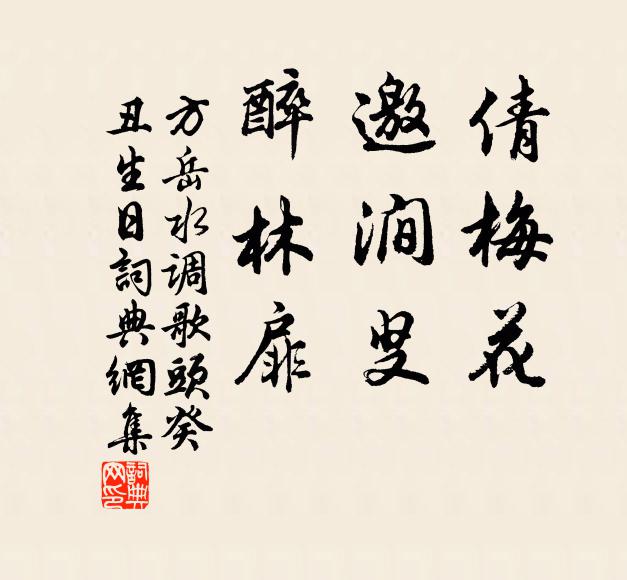 倩梅花
邀澗叟
醉林扉
方岳水调歌頭癸
丑生日詞典網集
詞典
网印